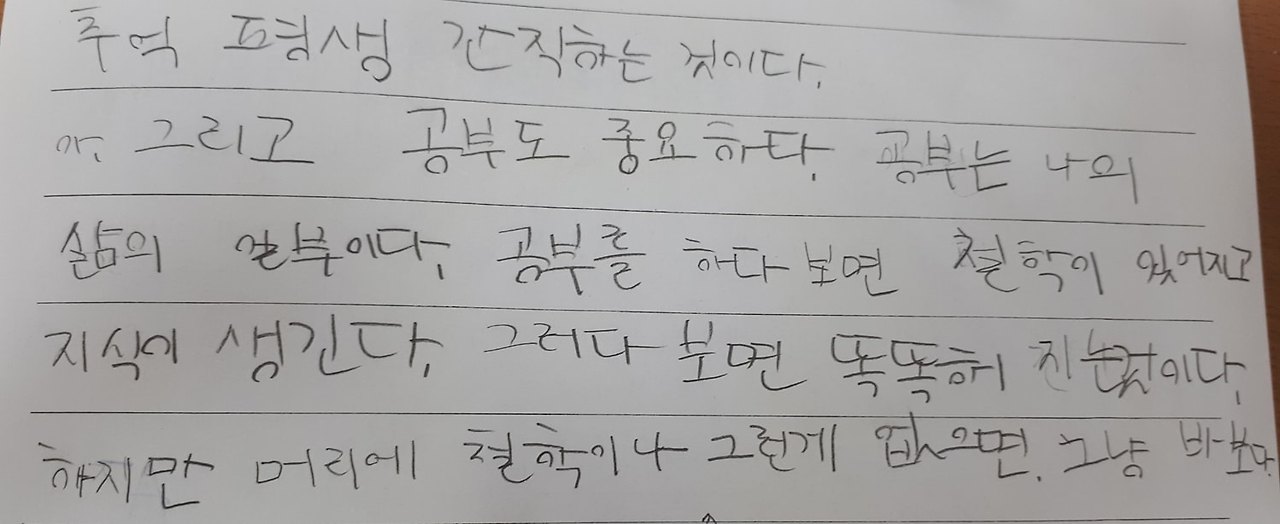 추억 평생 간직하는 것이다.
아. 그리고 공부도 중요하다. 공부는 나의
삶의 일부이다. 공부를 하다보면 철학이 있어지고
지식이 생긴다. 그러다 보면 똑똑해 진는것이다.
하지만 머리에 철학이나 그런게 없으면. 그냥 바보다.